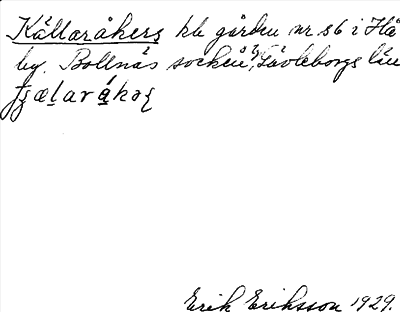 Källaråkers kb gården nr 56 i Hå
by. Bollnäs socken, Gävleborgs län
Erik Eriksson 1929.